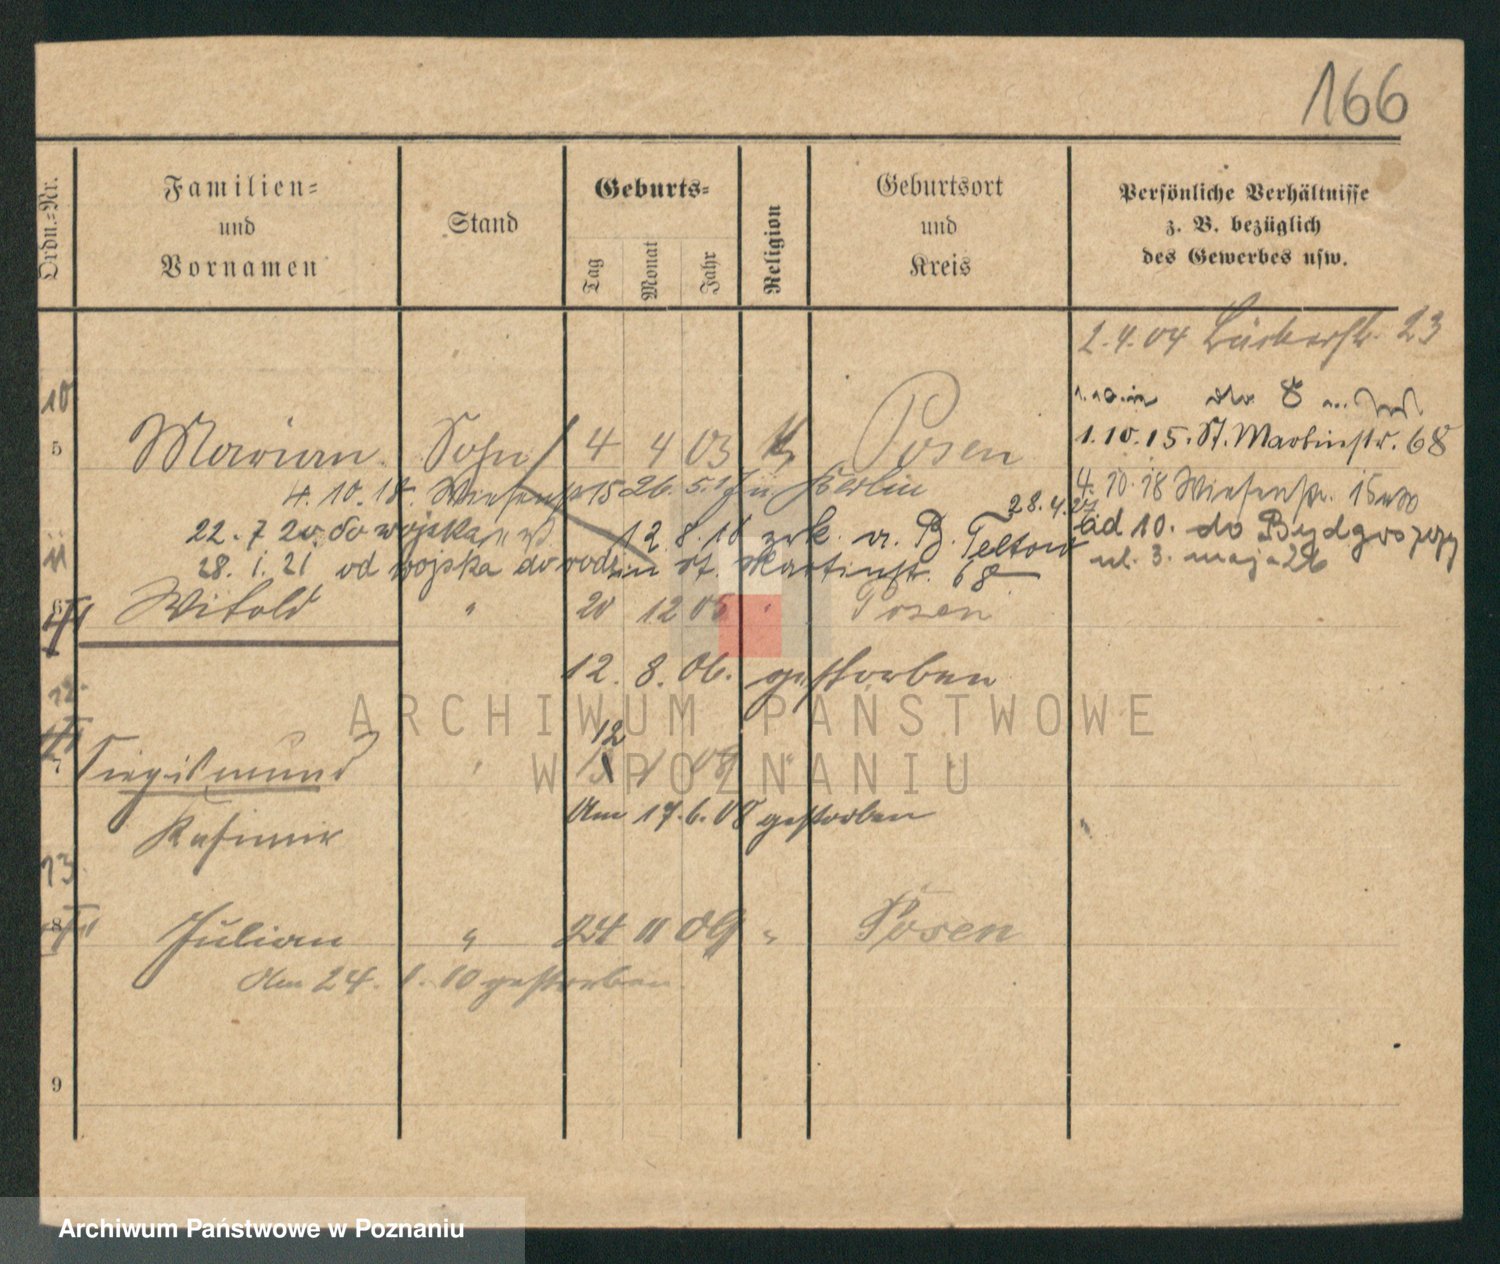 166
Ordn.-Nr.
Familien-
und
Vornamen
Stand
Geburts-
Tag
Monat
Jahr
Religion
Geburtsort
und
Kreis
Persönliche Verhältnisse
z. B. bezüglich
des Gewerbes usw.
1.4.04 Bäckerstr. 23
10
5 Marian Sohn 4 4 03 K Posen
1.10.15. St. Martinstr. 68
4. 10. 18. Wiesenstr 15 26. 5. Berlin
4. 10. 18 Wiesenstr. 15
28.4.27
22. 7 20. do wojska
12. 8. 18 zrk. v. B. Teltow
ad 10. do Bydgoszczy
28. 1. 21 od wojska do rodz. St. Martinstr. 68
ul. 3. maja 26
11
6 Witold " 20 12 05 " Posen
12. 8. 06. gestorben
12
7 Siegismund " 12 1 08 "
Kasimir
Am 17.6.08 gestorben
13
8 Julian " 24 11 09 " Posen
Am 24. 1. 10 gestorben.
9
ARCHIWUM PAŃSTWOWE
W POZNANIU
Archiwum Państwowe w Poznaniu